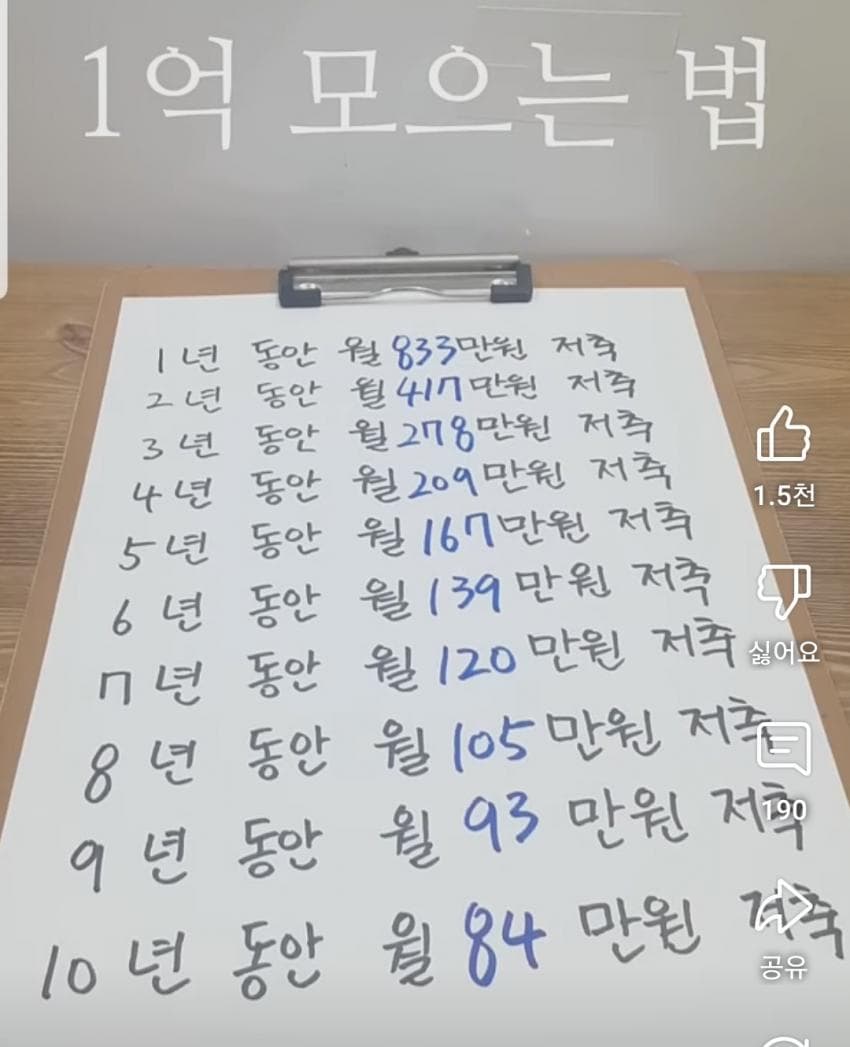 1억 모으는 법
1년 동안 월 833만원 저축
2년 동안 월 417만원 저축
3년 동안 월 278만원 저축
4년 동안 월 209만원 저축
5년 동안 월 167만원 저축
6년 동안 월 139만원 저축
7년 동안 월 120만원 저축
8년 동안 월 105만원 저축
9년 동안 월 93만원 저축
10년 동안 월 84만원 저축
1.5천
싫어요
190
공유